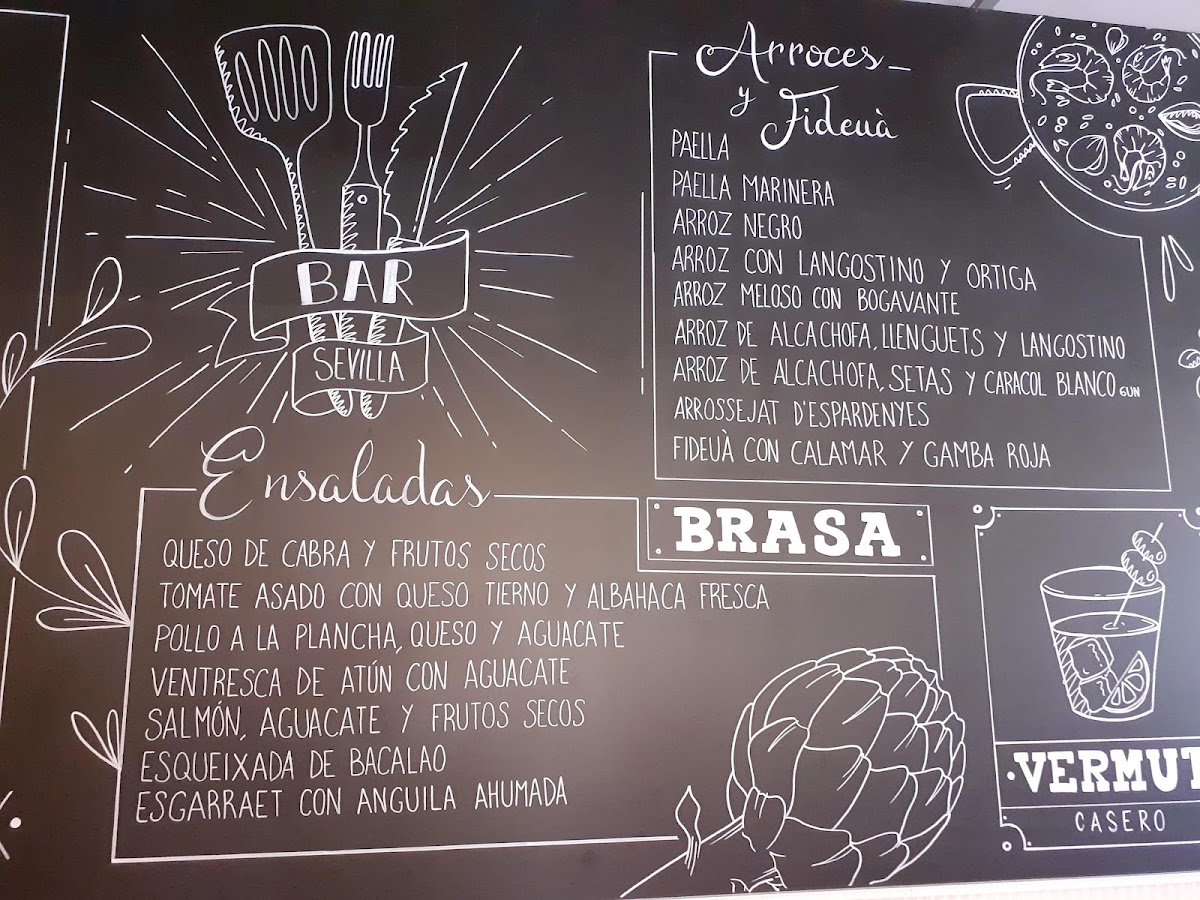 BAR
SEVILLA
Arroces
y
Fideuà
PAELLA
PAELLA MARINERA
ARROZ NEGRO
ARROZ CON LANGOSTINO Y ORTIGA
ARROZ MELOSO CON BOGAVANTE
ARROZ DE ALCACHOFA, LLENGUETS Y LANGOSTINO
ARROZ DE ALCACHOFA, SETAS Y CARACOL BLANCO GUN
ARROSSEJAT D'ESPARDENYES
FIDEUÀ CON CALAMAR Y GAMBA ROJA
Ensaladas
QUESO DE CABRA Y FRUTOS SECOS
TOMATE ASADO CON QUESO TIERNO Y ALBAHACA FRESCA
POLLO A LA PLANCHA, QUESO Y AGUACATE
VENTRESCA DE ATÚN CON AGUACATE
SALMÓN, AGUACATE Y FRUTOS SECOS
ESQUEIXADA DE BACALAO
ESGARRAET CON ANGUILA AHUMADA
BRASA
VERMUT
CASERO